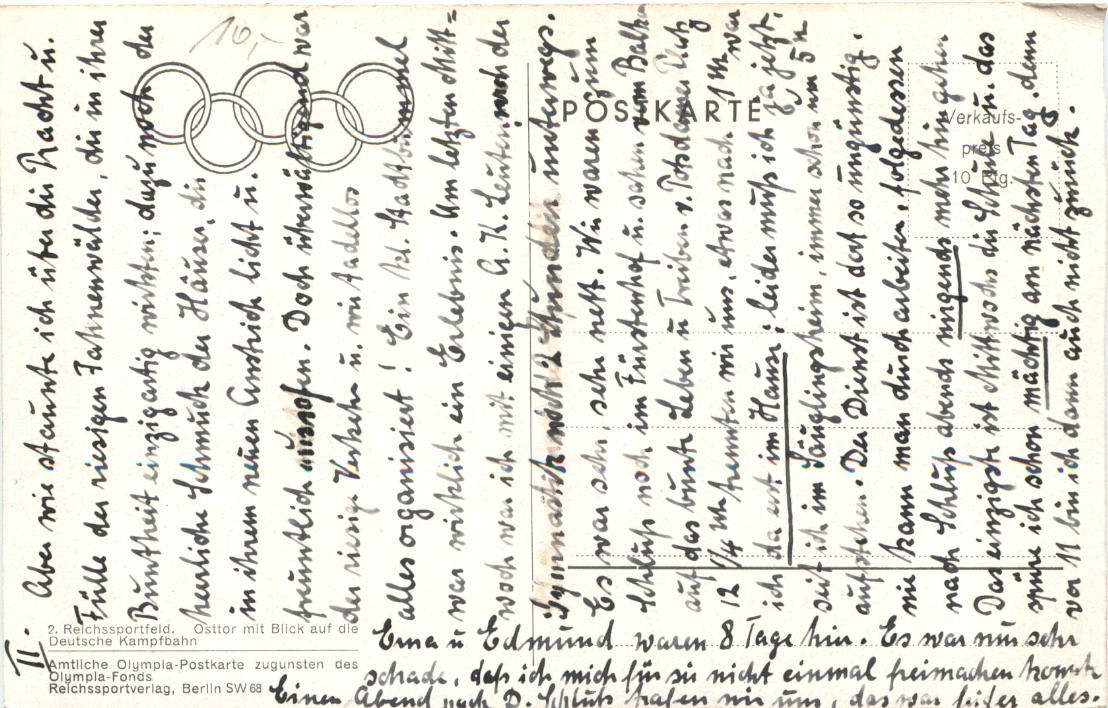 II.
Aber wie staunte ich über die Pracht u.
Fülle der riesigen Fahnenwälder, die in ihrer
Buntheit einzigartig wirkten; dazu noch der
herrliche Schmuck der Häuser, die
in ihrem neuen Anstrich licht u.
freundlich aussahen. Doch überwältigend war
der riesige Verkehr u. wie tadellos
alles organisiert! Ein Stadtbummel
war wirklich ein Erlebnis. Am letzten Mitt-
woch war ich mit einigen von der
Gymnastik noch 2 Stunden unterwegs.
Es war sehr, sehr nett. Wir waren zum
Schluß noch im Fürstenhof u. sahen vom Balkon
auf das bunte Leben u Treiben v. Potsdamer Platz
12 1/4 Uhr trennten wir uns, etwas nach 1 Uhr war
ich da erst im Hause; leider muß ich ja jetzt,
seit ich im Säuglingsheim, immer schon um 5 h
aufstehen. Der Dienst ist dort so ungünstig.
nie kann man durcharbeiten, folgedessen
nach Schluß abends nirgends mehr hingehen
Das einzigste ist Mittwochs die Schule u. das
spüre ich schon mächtig am nächsten Tag, denn
vor 11 bin ich dann auch nicht zurück.
Erna u Edmund waren 8 Tage hier. Es war nun sehr
schade, daß ich mich für sie nicht einmal freimachen konnte
Einen Abend nach D. Schluß trafen wir uns, das war leider alles.
POSTKARTE
Verkaufs-
preis
10 Pfg.
10,-
2. Reichssportfeld. Osttor mit Blick auf die
Deutsche Kampfbahn
Amtliche Olympia-Postkarte zugunsten des
Olympia-Fonds
Reichssportverlag, Berlin SW 68